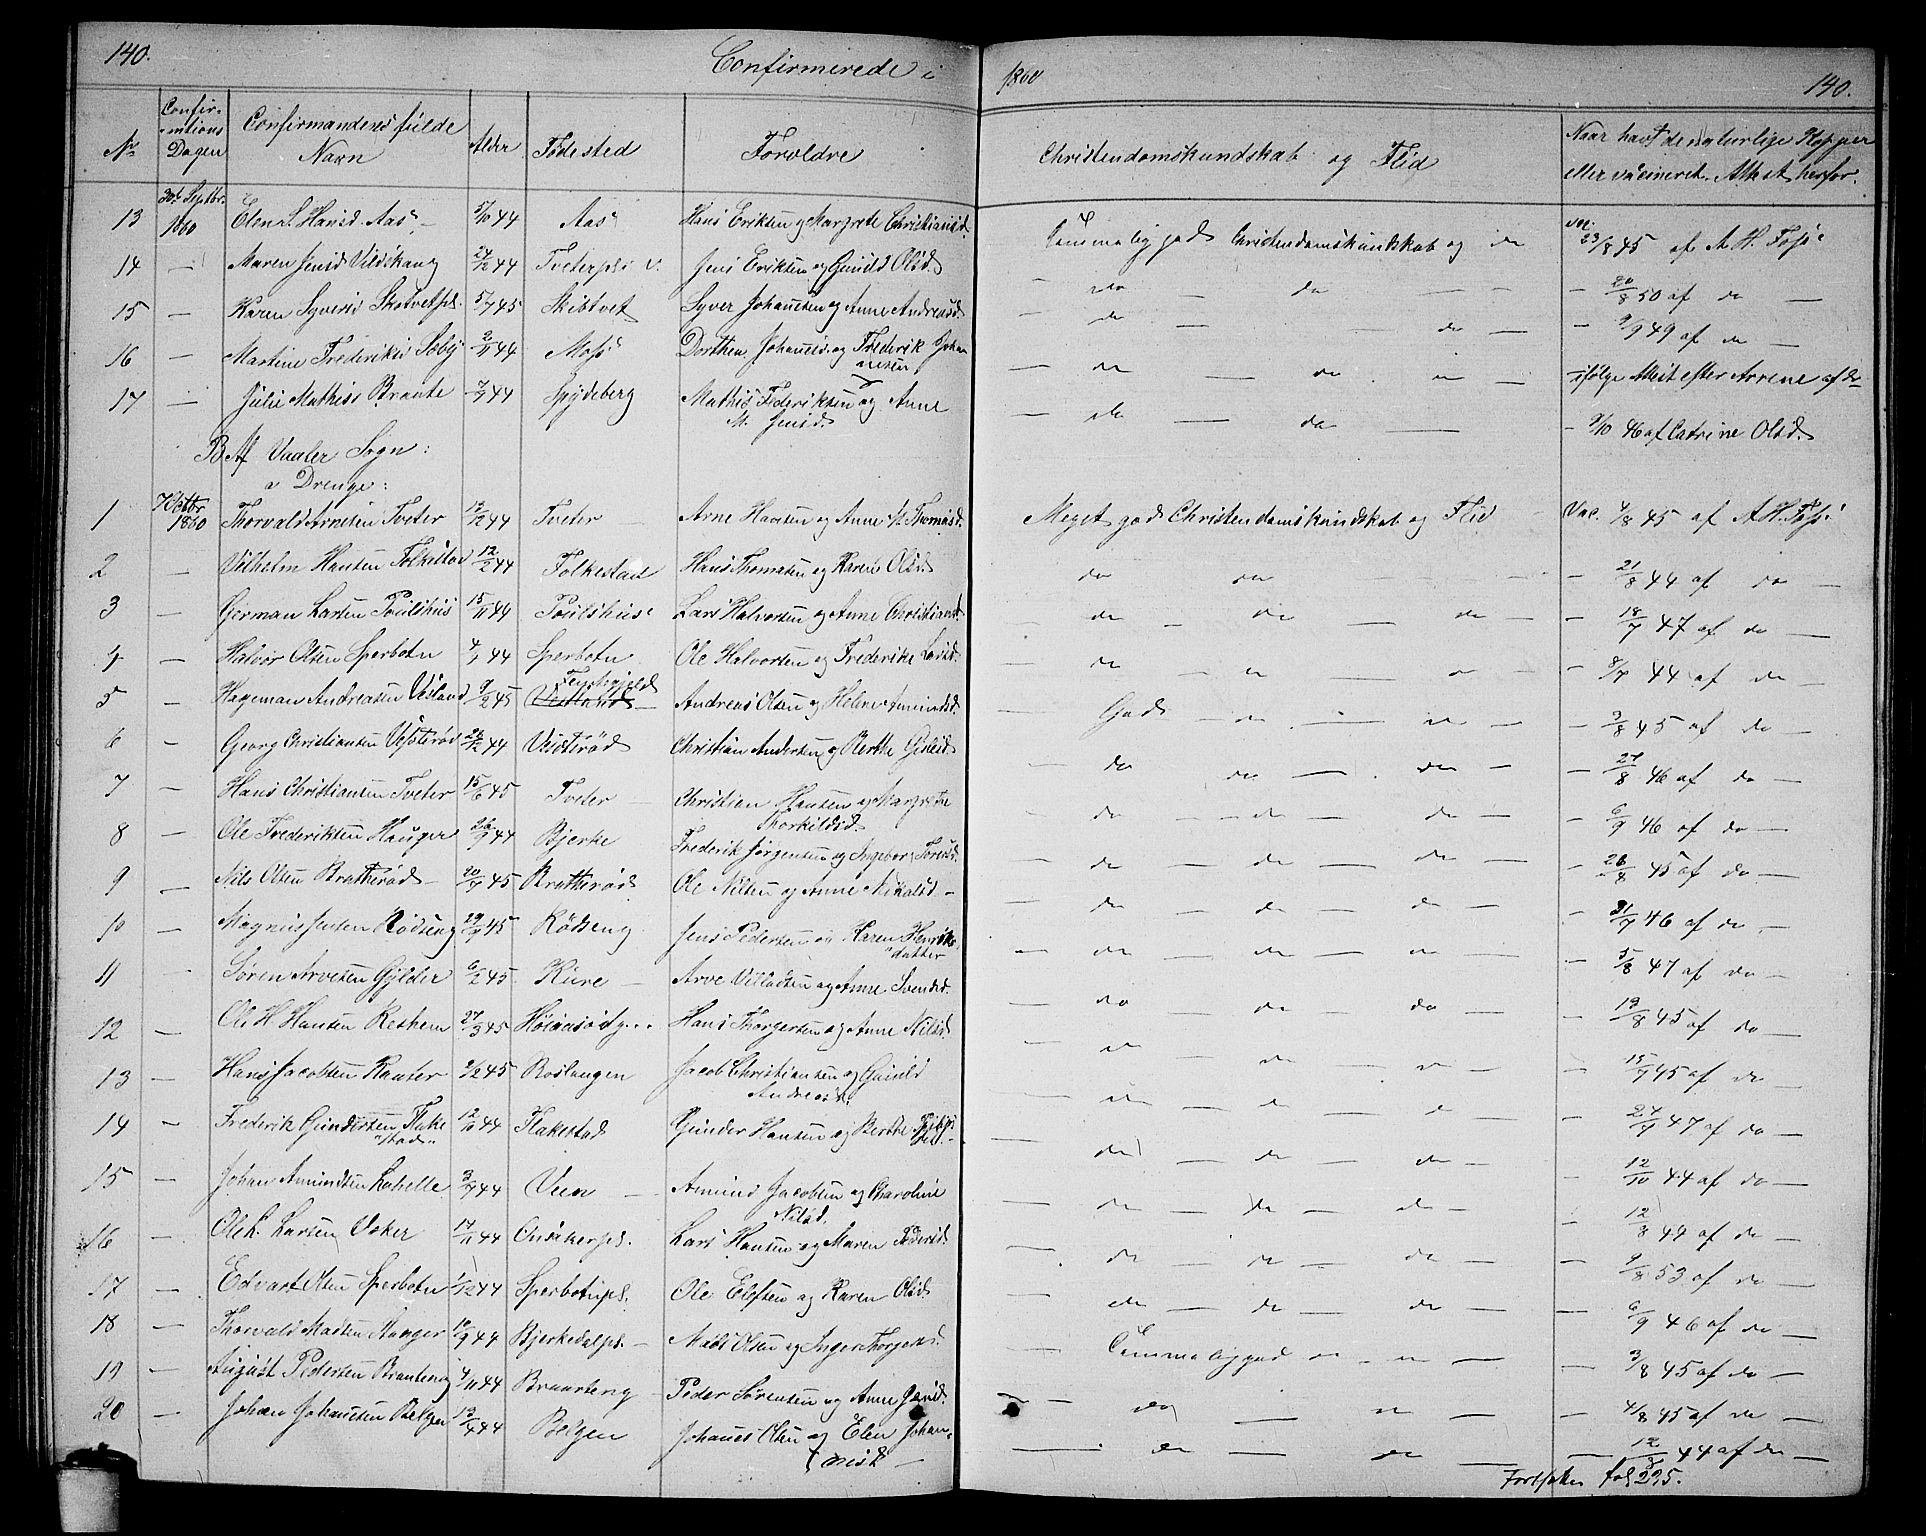 140. Confirmerede i 1860 140.
No Confirmations Dagen Confirmandens fulde Navn Alder Fødested Forældre Christendomskundskab og Flid Naar havt de naturlige Kopper eller vacineret. Attest herfor.
30te Septbr. 1860
13 Elen S. Hansd. Aas 5/10 44 Aas Hans Eriksen og Margrete Christiansd. Temmelig god Christendomskundskab og do vac. 23/8 45 af A. H. Foss
14 — Maren Jensd Vildskaug 27/2 44 Tveterpl. v. Jens Eriksen og Gunild Olsd. — do — do — — 20/8 50 af do —
15 — Karen Syversd Skotvetpl. 5/7 45 Skibtvet Syver Johansen og Anne Andreasd — do — do — — 9/9 49 af do —
16 — Martine Frederiksd Soby 2/11 44 Moss Dorthea Johansd. og Frederik Johannesen — do — do — — ifølge Attest efter Arrene af do —
17 — Julie Mathisd Braate 7/9 44 Spydeberg Mathis Frederiksen og Anne M. Jensd. — do — do — — 9/10 46 af Catrine Olsd.
B Af Vaaler Sogn:
a Drenge:
1 7 Octbr 1860 Thorvald Arnesen Tveter 12/12 44 Tveter Arne Hansen og Anne M. Thomasd. Meget god Christendomskundskab og Flid — Vac. 4/8 45 af A. H. Foss
2 — Vilhelm Hansen Folkestad 12/2 44 Folkestad Hans Thomasen og Karen Olsd. do do — — 21/8 44 af do —
3 — German Larsen Poulshus 15/11 44 Poulshus Lars Halvorsen og Anne Christiansd. do — do — do — — 18/7 47 af do —
4 — Halvor Olsen Sperbotn 4/1 44 Sperbotn Ole Halvorsen og Frederike Larsd. — do — do — do — — 8/7 44 af do —
5 — Hageman Andreasen Vestland 9/2 45 Vestland Andreas Olsen og Helene Amundsd. — God — do — do — — 9/8 45 af do —
6 — Georg Christiansen Vesterød 26/12 44 Vesterød Christian Andersen og Berthe — do do — do — — 27/8 46 af do —
7 — Hans Christiansen Tveter 15/6 45 Tveter Christian Hansen og Margrethe Thorkildsd. — do — do — do — — 6/9 46 af do —
8 — Ole Frederiksen Hauger 26/9 44 Bjerke Frederik Jørgensen og Ingeborg — do — do — do — — 26/8 45 af do —
9 — Nils Olsen Bratterød 20/7 45 Bratterød Ole Nilsen og Anne Nikolsd — — do — do — do — — 31/7 46 af do —
10 — Magnus Jensen Rødseng 29/9 45 Rødseng Jens Pedersen og Karen Henriksdatter — do — do — do — — 5/8 47 af do —
11 — Søren Arvesen Gylder 6/2 45 Kure Arve Villadsen og Anne Svendsd. — do — do — do — — 19/8 45 af do —
12 — Ole H. Hansen Reshem 27/3 45 Hans Thorgersen og Anne Nilsd. — do — do — do — — 15/7 45 af do —
13 — Hans Jacobsen Rauter 2/12 45 Roslangen Jacob Christiansen og Gunild Andreasd. — do — do — do — — 27/9 47 af do —
14 — Frederik Gundersen Flakestad 12/10 44 Flakestad Gunder Hansen og Berthe — do — do — do — — 12/10 44 af do —
15 — Johan Amundsen Labelle 3/7 44 Veen Amund Jacobsen og Caroline Nilsd. — do — do — do — — 12/8 49 af do —
16 — Ole L. Larsen Vaker 17/11 44 Lars Hansen og Maren Pedersd. — do — do — do — — 9/8 53 af do —
17 — Edvart Olsen Sperbotn 1/12 44 Sperbotnpl. Ole Elefsen og Karen Olsd. — do — do — do — — 6/9 46 af do —
18 — Thorvald Madsen Hauger 10/9 44 Bjerkedalpl. Mads Olsen og Inger Thorgersd. — Temmelig god do — do — — 3/8 45 af do —
19 — August Pedersen Brauteng 4/11 44 Braarteng Peder Sørensen og Anne Jensd. — do — do — — 4/8 45 af do —
20 — Johan Johansen Bølgen 19/4 44 Bølgen Johanes Olsen og Elen Johannesd — — do — do — — 12/8 44 af do —
Fortsættes fol 295.